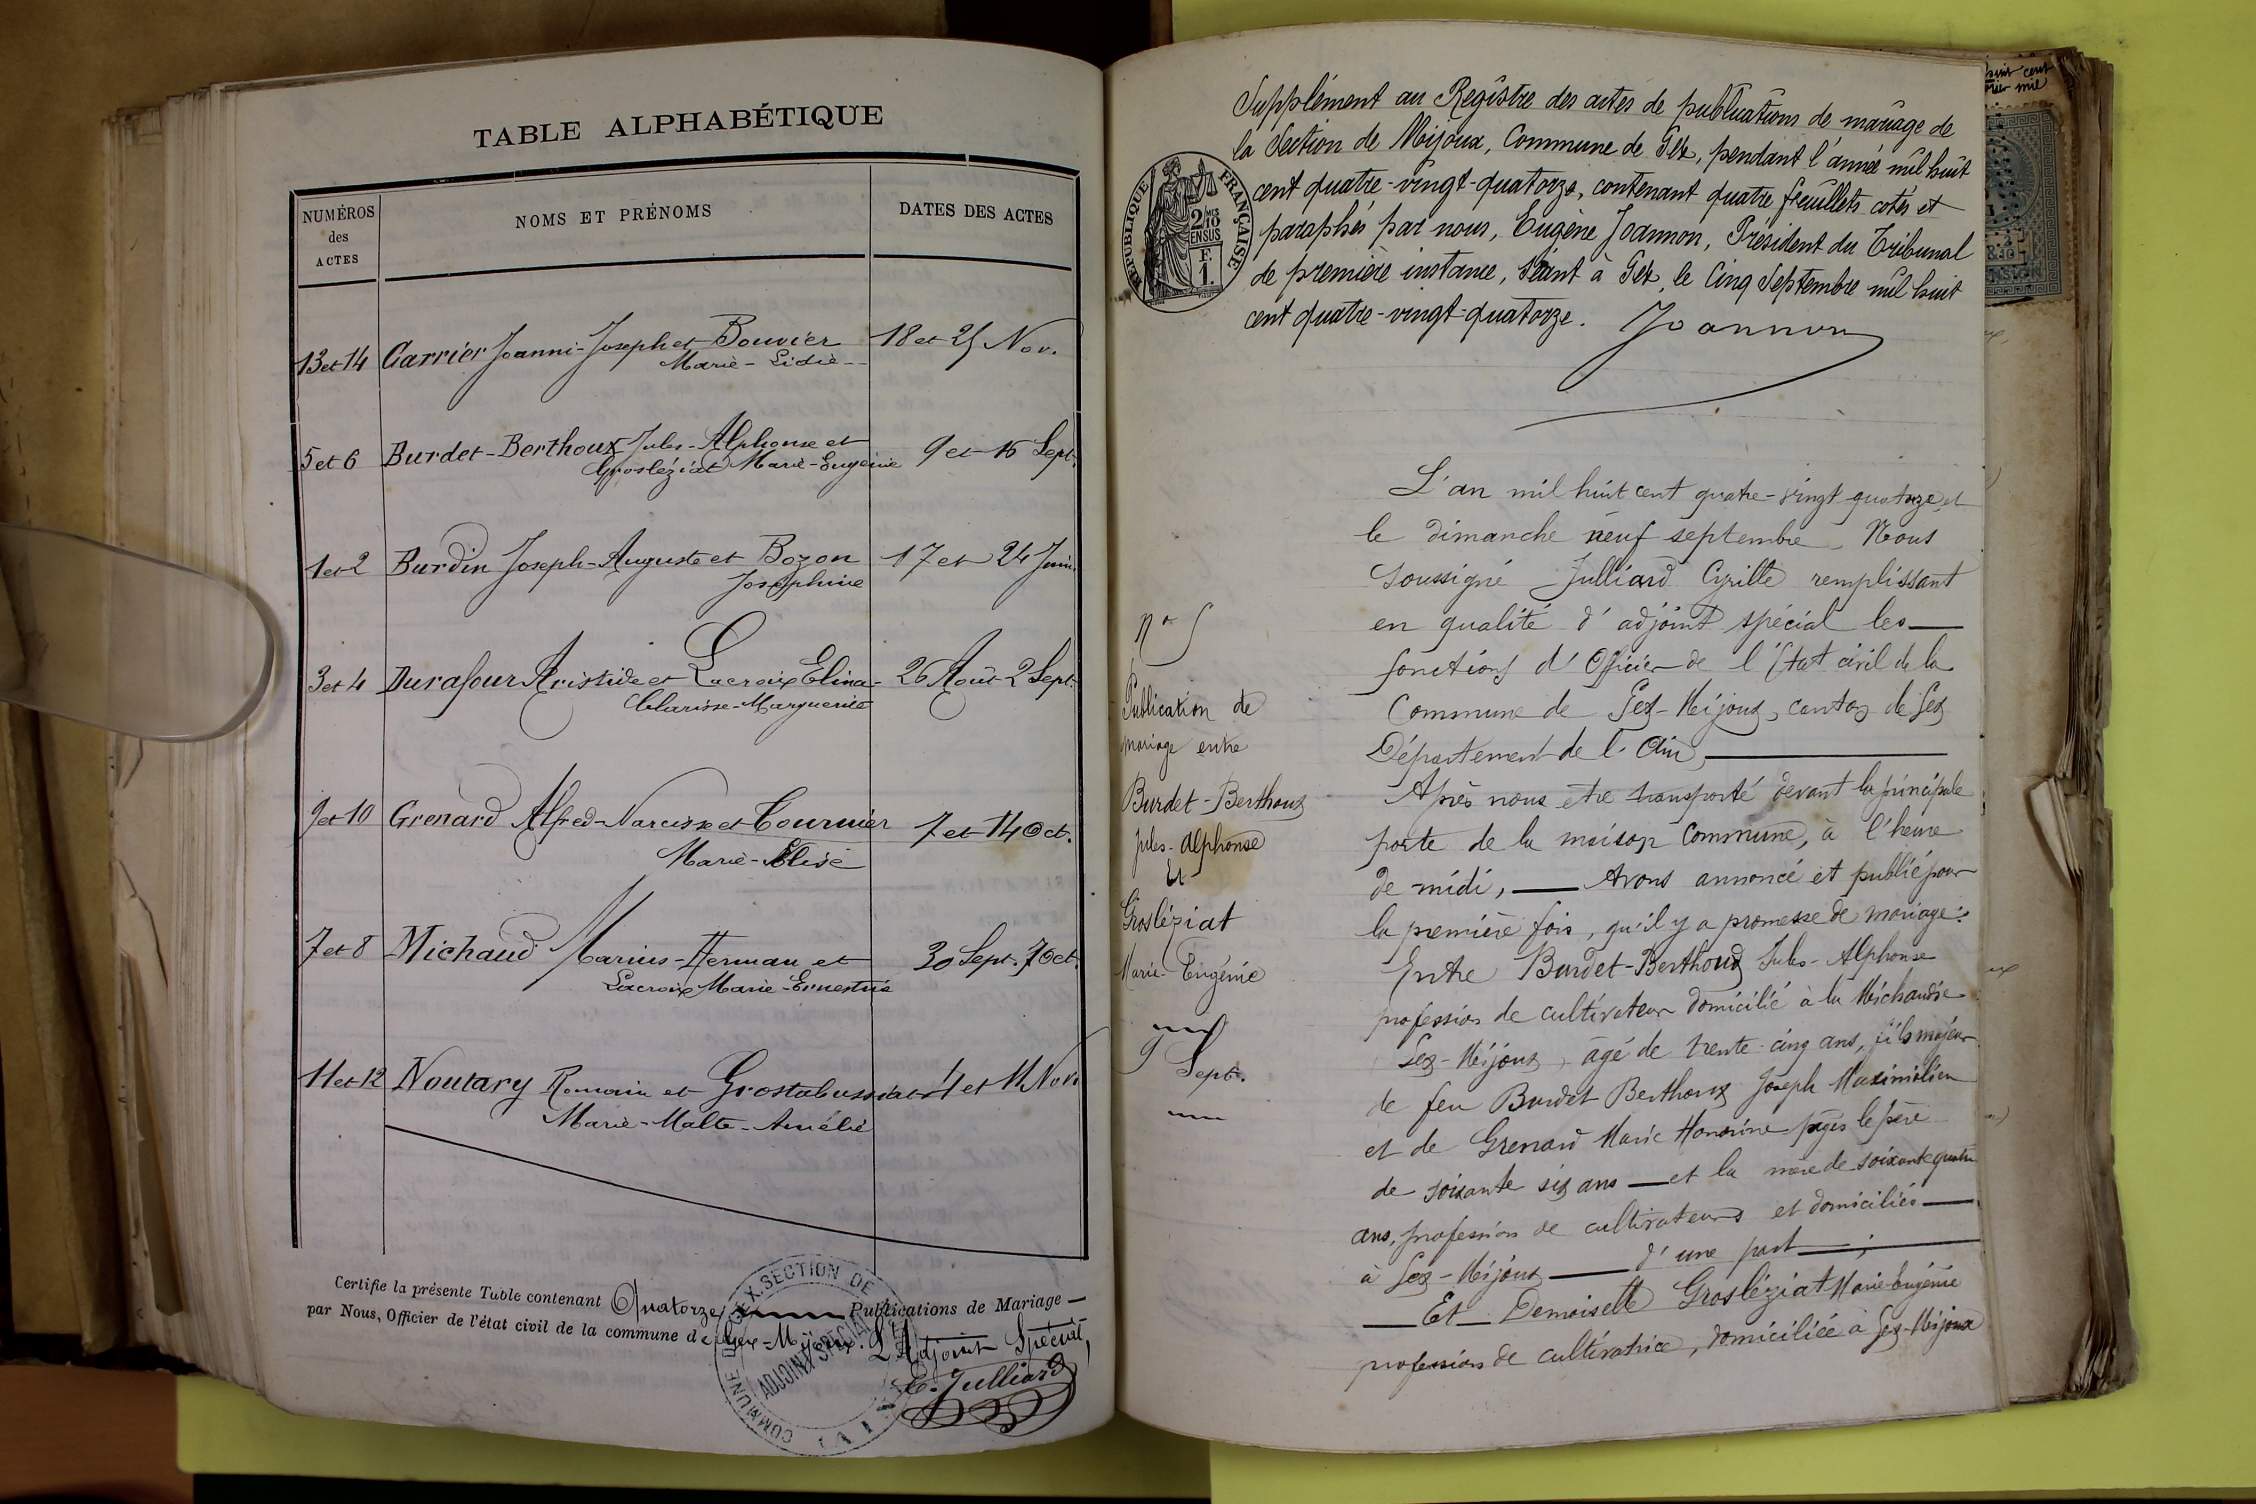 TABLE ALPHABÉTIQUE
NUMÉROS
des
ACTES
NOMS ET PRÉNOMS
DATES DES ACTES
13 et 14 Carrier Joanni-Joseph et Bouvier 18 et 25 Nov.
Marie-Lidie
5 et 6 Burdet-Berthoux Jules-Alphonse et 9 et 16 Sept.
Grosléziat Marie-Eugénie
1 et 2 Burdin Joseph-Auguste et Bozon 17 et 24 Juin.
Joséphine
3 et 4 Durafour Aristide et Lacroix Elina- 26 Août 2 Sept.
Clarisse-Marguerite
9 et 10 Grenard Alfred-Narcisse et Cournier 7 et 14 Oct.
Marie-Elise
7 et 8 Michaud Marius-Herman et 30 Sept. 7 Oct.
Lacroix Marie-Ernestine
11 et 12 Noutary Romain et Grostabussiat 4 et 11 Nov.
Marie-Malte-Amélie
Certifie la présente Table contenant Quatorze Publications de Mariage
par Nous, Officier de l'état civil de la commune de Gex-Mijoux. L'Adjoint Spécial,
C. Julliard
COMMUNE DE GEX. SECTION DE
ADJOINT SPÉCIAL
(AIN)
Supplément au Registre des actes de publications de mariage de
la Section de Mijoux, Commune de Gex, pendant l'année mil huit
cent quatre-vingt-quatorze, contenant quatre feuillets cotés et
paraphés par nous, Eugène Joannon, Président du Tribunal
de première instance, séant à Gex, le Cinq Septembre mil huit
cent quatre-vingt-quatorze.
Joannon
RÉPUBLIQUE FRANÇAISE
2/10
EN SUS
1 F.
L'an mil huit cent quatre-vingt quatorze et
le dimanche neuf septembre Nous
soussigné Julliard Cyrille remplissant
en qualité d'adjoint spécial les
fonctions d'Officier de l'Etat civil de la
Commune de Gex-Mijoux, canton de Gex
Département de l'Ain,
Après nous être transporté devant la principale
porte de la maison Commune, à l'heure
de midi, Avons annoncé et publié pour
la première fois, qu'il y a promesse de mariage:
Entre Burdet-Berthoux Jules-Alphonse
profession de cultivateur domicilié à la Michaudie
Gex-Mijoux, âgé de trente-cinq ans, fils majeur
de feu Burdet Berthoux Joseph Maximilien
et de Grenard Marie Honorine âgés le père
de soixante six ans et la mère de soixante quatre
ans, profession de cultivateurs et domiciliés
à Gex-Mijoux d'une part;
Et Demoiselle Grosléziat Marie-Eugénie
profession de cultivatrice, domiciliée à Gex-Mijoux
N° 5
Publication de
mariage entre
Burdet-Berthoux
Jules-Alphonse
Et
Grosléziat
Marie-Eugénie
9 Sept.